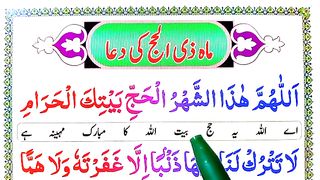 ماہ ذی الحج کی دعا
اَللّٰهُمَّ هٰذَا الشَّهْرُ الْحَجِّ بَيْتِكَ الْحَرَامِ
اے اللہ یہ حج بیت اللہ کا مبارک مہینہ ہے
لَا تَتْرُكْ لَنَا ذَنْۢبًا اِلَّا غَفَرْتَهٗ وَلَا هَمًّا